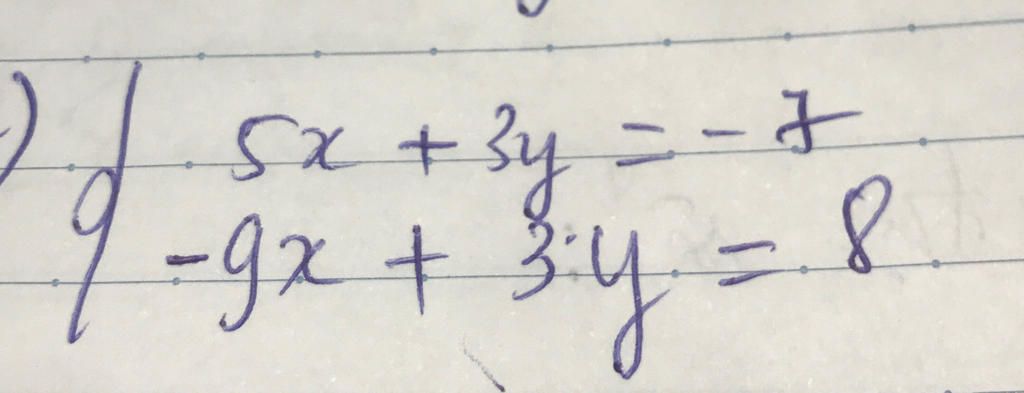 ) { 5x + 3y = - 7
-9x + 3·y = 8